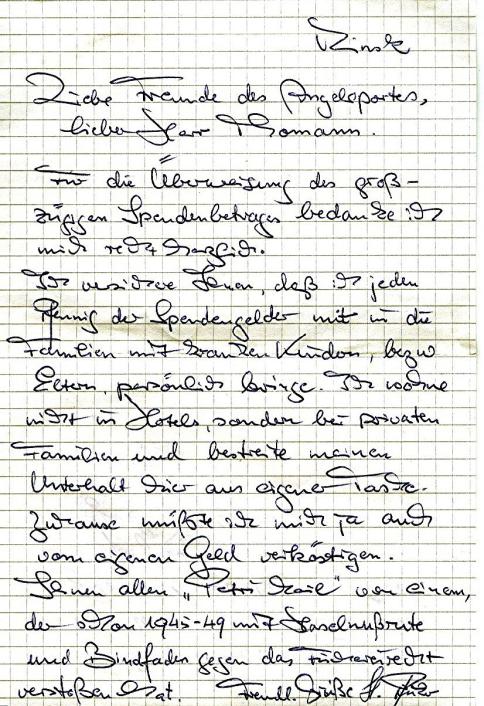 Minsk
Liebe Freunde des Angelsportes,
lieber Herr Thomann.
Für die Überweisung des groß-
zügigen Spendenbetrages bedanke ich
mich recht herzlich.
Ich versichere Ihnen, daß ich jeden
Pfennig der Spendengelder mit in die
Familien mit kranken Kindern, bezw
Eltern, persönlich bringe. Ich wohne
nicht in Hotels, sondern bei privaten
Familien und bestreite meinen
Unterhalt hier aus eigener Tasche.
Zuhause müßte ich mich ja auch
vom eigenen Geld verköstigen.
Ihnen allen „Petri Heil" von einem,
der schon 1945-49 mit Haselnußrute
und Bindfaden gegen das Fischereirecht
verstoßen hat. Freundl. Grüße